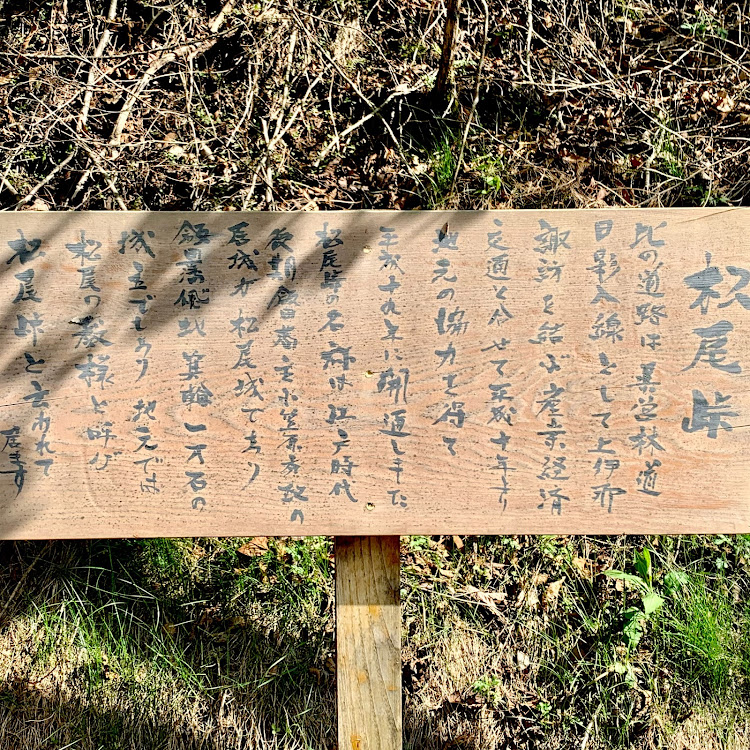 松尾峠
此の道路は 異営林道
日影入線 として上伊那
諏訪を結ぶ産業経済
交通と合せて平成十年より
地元の協力を得て
平成十九年に開通しました
松尾峠の名称は江戸時代
後期飯田藩主小笠原秀政の
居城が松尾城であり
飯田藩 箕輪一万石の
成立であり 地元では
松尾の殿様と呼び
松尾峠と言われて
居ます